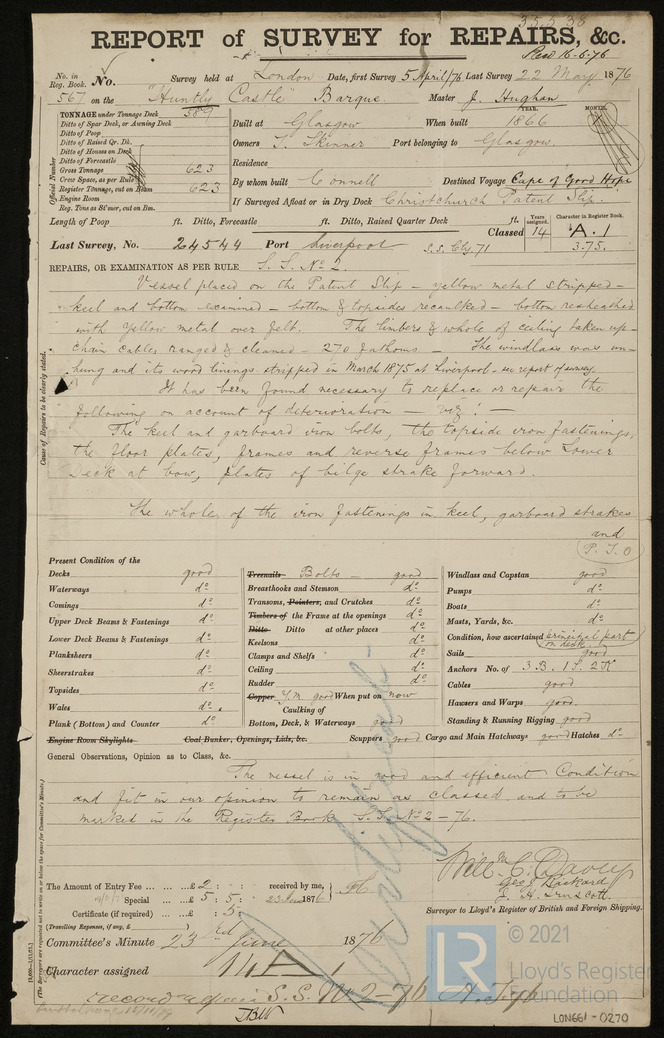 REPORT of SURVEY for REPAIRS, &c.
Recd 16-6-76
No. in Reg. Book. No. Survey held at London Date, first Survey 5 April/76 Last Survey 22 May 1876
567 on the "Huntly Castle" Barque Master J. Hughan
TONNAGE under Tonnage Deck 589
Ditto of Spar Deck, or Awning Deck
Ditto of Poop
Ditto of Raised Qr. Dk.
Ditto of Houses on Deck
Ditto of Forecastle
Gross Tonnage 623
Crew Space, as per Rule
Register Tonnage, cut on Beam 623
Engine Room
Reg. Tons as St'mr, cut on Bm.
Official Number
Built at Glasgow When built 1866
YEAR. MONTH.
Owners T. Skinner Port belonging to Glasgow.
Residence
By whom built Connell Destined Voyage Cape of Good Hope
If Surveyed Afloat or in Dry Dock Christchurch Patent Slip.
Length of Poop ft. Ditto, Forecastle ft. Ditto, Raised Quarter Deck ft.
Years assigned. Character in Register Book.
Classed 14 A.1
3.75.
Last Survey, No. 24544 Port Liverpool S.S. Cly. 71
REPAIRS, OR EXAMINATION AS PER RULE S.S. No 2.
Vessel placed on the Patent Slip – yellow metal stripped –
keel and bottom examined – bottom & topsides recaulked – bottom resheathed
with yellow metal over felt. The limbers & whole of ceiling taken up –
chain cables ranged & cleaned – 270 fathoms – The windlass was un-
hung and its wood linings stripped in March 1875 at Liverpool – see report of survey.
It has been found necessary to replace or repair the
following on account of deterioration – viz: –
The keel and garboard iron bolts, the topside iron fastenings,
the floor plates, frames and reverse frames below Lower
Deck at bow, plates of bilge strake forward.
The whole of the iron fastenings in keel, garboard strakes
and
P.T.O
Cause of Repairs to be clearly stated.
Present Condition of the
Decks good
Waterways do
Comings do
Upper Deck Beams & Fastenings do
Lower Deck Beams & Fastenings do
Planksheers do
Sheerstrakes do
Topsides do
Wales do
Plank (Bottom) and Counter do
Engine Room Skylights
Treenails Bolts – good
Breasthooks and Stemson do
Transoms, Pointers, and Crutches do
Timbers of the Frame at the openings do
Ditto Ditto at other places do
Keelsons do
Clamps and Shelfs do
Ceiling do
Rudder do
Copper Y.M. good When put on now
Caulking of
Bottom, Deck, & Waterways good
Coal Bunker, Openings, Lids, &c.
Scuppers good Cargo and Main Hatchways good Hatches do
Windlass and Capstan good
Pumps do
Boats do
Masts, Yards, &c. do
Condition, how ascertained principal part on deck.
Sails good
Anchors No. of 3 B. 1 S. 2 K
Cables good
Hawsers and Warps good.
Standing & Running Rigging good
General Observations, Opinion as to Class, &c.
The vessel is in good and efficient Condition
and fit in our opinion to remain as classed and to be
marked in the Register Book S.S. No 2 – 76.
Geo. J. Packard
Surveyor to Lloyd's Register of British and Foreign Shipping.
The Amount of Entry Fee £2 : : received by me,
Special £5 : 5 : 1876
Certificate (if required) : 5 :
(Travelling Expenses, if any, £ )
Committee's Minute 23rd June 1876
Character assigned 14 A 1
record S.S. No 2–76
(The Surveyors are requested not to write on or below the space for Committee's Minute.)
© 2021
LR
Lloyd's Register
Foundation
LON661-0270